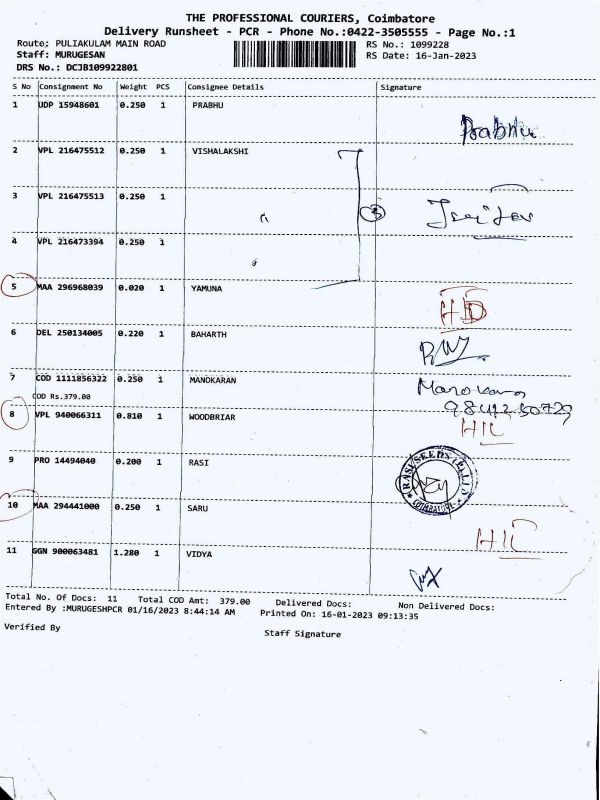 THE PROFESSIONAL COURIERS, Coimbatore
Delivery Runsheet - PCR - Phone No.:0422-3505555 - Page No.:1
Route; PULIAKULAM MAIN ROAD
RS No.: 1099228
Staff: MURUGESAN
RS Date: 16-Jan-2023
DRS No.: DCJB109922801
S No Consignment No Weight PCS Consignee Details Signature
1 UDP 15948601 0.250 1 PRABHU
Prabhu
2 VPL 216475512 0.250 1 VISHALAKSHI
3 VPL 216475513 0.250 1
3
4 VPL 216473394 0.250 1
5 MAA 296968039 0.020 1 YAMUNA
6 DEL 250134005 0.220 1 BAHARTH
7 COD 1111856322 0.250 1 MANOKARAN
COD Rs.379.00
8 VPL 940066311 0.810 1 WOODBRIAR
9 PRO 14494040 0.200 1 RASI
RASI SEEDS (P) LTD
COIMBATORE
10 MAA 294441000 0.250 1 SARU
11 GGN 900063481 1.280 1 VIDYA
Total No. Of Docs: 11 Total COD Amt: 379.00 Delivered Docs: Non Delivered Docs:
Entered By :MURUGESHPCR 01/16/2023 8:44:14 AM Printed On: 16-01-2023 09:13:35
Verified By Staff Signature